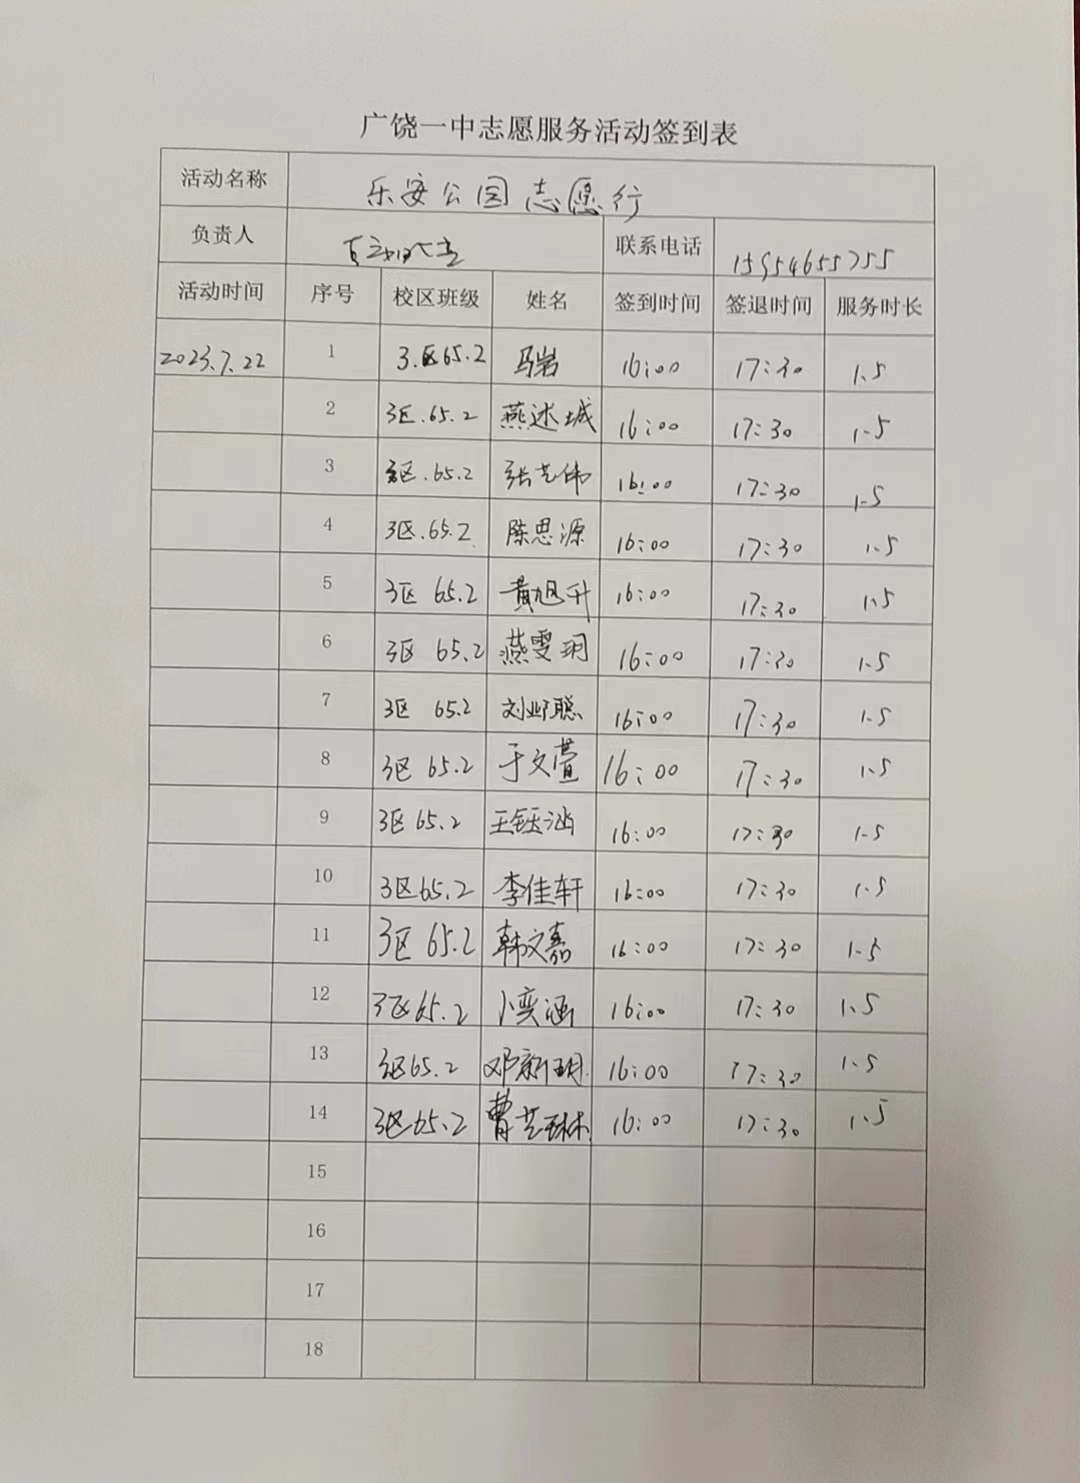 广饶一中志愿服务活动签到表
活动名称 乐安公园志愿行
负责人 联系电话 15954655755
活动时间 序号 校区班级 姓名 签到时间 签退时间 服务时长
2023.7.22 1 3.区65.2 马岩 16:00 17:30 1.5
2 3区.65.2 燕述城 16:00 17:30 1.5
3 3区.65.2 张艺伟 16:00 17:30 1.5
4 3区.65.2 陈思源 16:00 17:30 1.5
5 3区 65.2 黄旭升 16:00 17:30 1.5
6 3区 65.2 燕雯玥 16:00 17:30 1.5
7 3区 65.2 刘邺聪 16:00 17:30 1.5
8 3区 65.2 于文萱 16:00 17:30 1.5
9 3区65.2 王钰涵 16:00 17:30 1.5
10 3区65.2 李佳轩 16:00 17:30 1.5
11 3区 65.2 韩文嘉 16:00 17:30 1.5
12 3区65.2 卜奕涵 16:00 17:30 1.5
13 3区65.2 邓新玥 16:00 17:30 1.5
14 3区65.2 曹艺琳 16:00 17:30 1.5
15
16
17
18